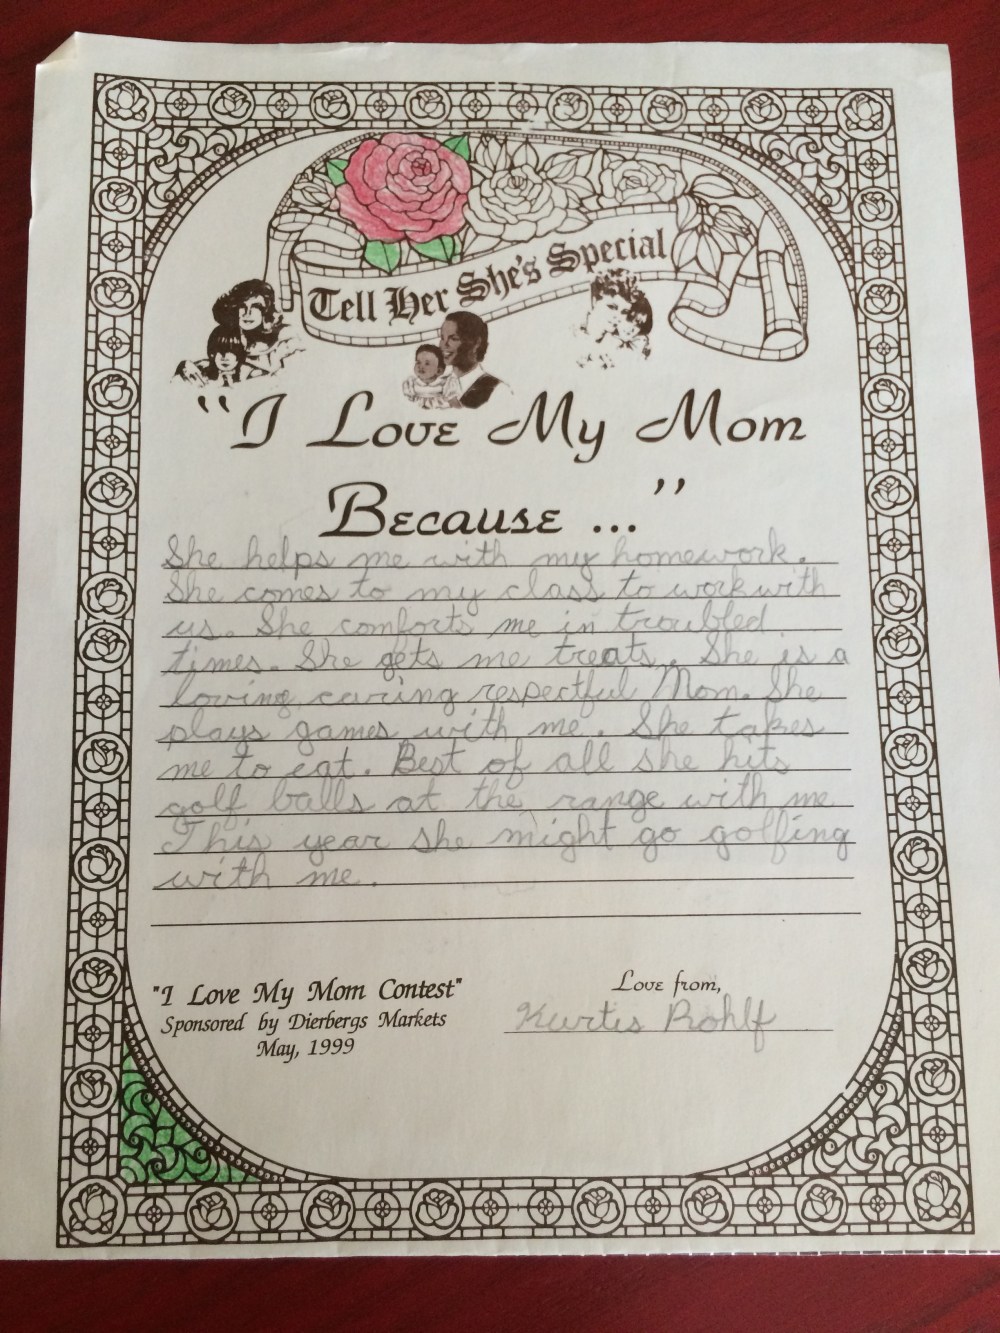 Tell Her She's Special
"I Love My Mom
Because ..."
She helps me with my homework.
She comes to my class to work with
us. She comforts me in troubled
times. She gets me treats. She is a
loving, caring respectful Mom. She
plays games with me. She takes
me to eat. Best of all she hits
golf balls at the range with me
This year she might go golfing
with me.
"I Love My Mom Contest"
Sponsored by Dierbergs Markets
May, 1999
Love from,
Kurtis Rohlf